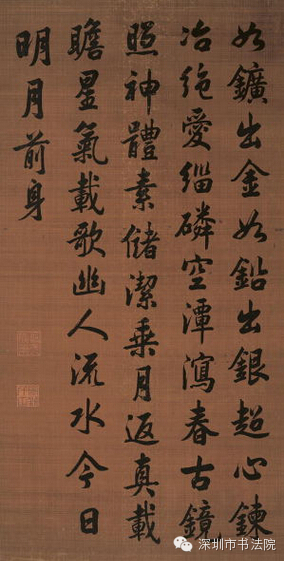 如鑛出金如鉛出銀超心鍊
冶絶愛緇磷空潭瀉春古鏡
照神體素儲潔乗月返真載
瞻星氣載歌幽人流水今日
明月前身
深圳市书法院